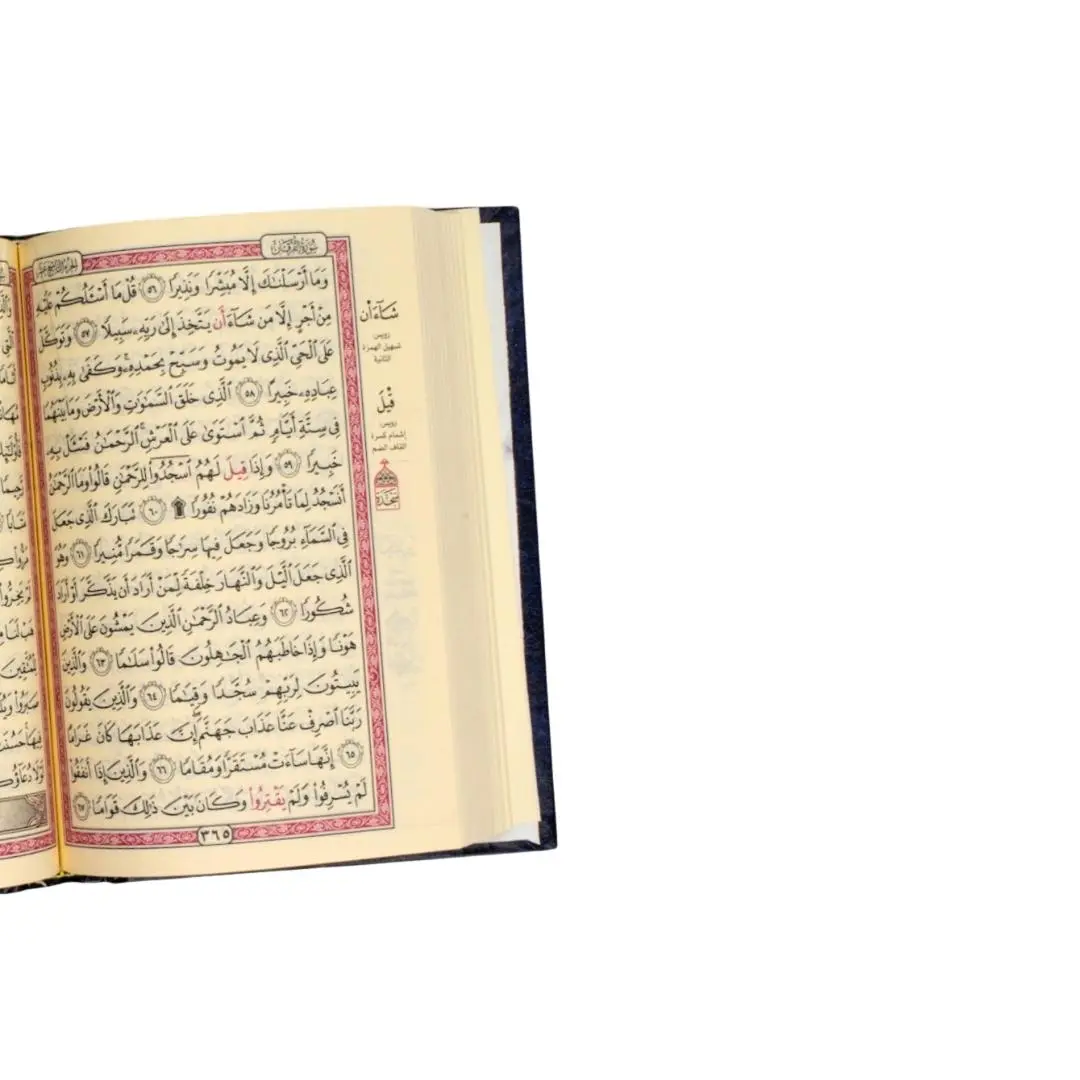 سُورَةُ الفُرْقَان
الجزء التاسع عشر
وَمَآ أَرْسَلْنَٰكَ إِلَّا مُبَشِّرًا وَنَذِيرًا ٥٦ قُلْ مَآ أَسْـَٔلُكُمْ عَلَيْهِ
مِنْ أَجْرٍ إِلَّا مَن شَآءَ أَن يَتَّخِذَ إِلَىٰ رَبِّهِۦ سَبِيلًا ٥٧ وَتَوَكَّلْ
عَلَى ٱلْحَىِّ ٱلَّذِى لَا يَمُوتُ وَسَبِّحْ بِحَمْدِهِۦ وَكَفَىٰ بِهِۦ بِذُنُوبِ
عِبَادِهِۦ خَبِيرًا ٥٨ ٱلَّذِى خَلَقَ ٱلسَّمَٰوَٰتِ وَٱلْأَرْضَ وَمَا بَيْنَهُمَا
فِى سِتَّةِ أَيَّامٍ ثُمَّ ٱسْتَوَىٰ عَلَى ٱلْعَرْشِ ٱلرَّحْمَٰنُ فَسْـَٔلْ بِهِۦ
خَبِيرًا ٥٩ وَإِذَا قِيلَ لَهُمُ ٱسْجُدُوا۟ لِلرَّحْمَٰنِ قَالُوا۟ وَمَا ٱلرَّحْمَٰنُ
أَنَسْجُدُ لِمَا تَأْمُرُنَا وَزَادَهُمْ نُفُورًا ۩ ٦٠ تَبَارَكَ ٱلَّذِى جَعَلَ
فِى ٱلسَّمَآءِ بُرُوجًا وَجَعَلَ فِيهَا سِرَٰجًا وَقَمَرًا مُّنِيرًا ٦١ وَهُوَ
ٱلَّذِى جَعَلَ ٱلَّيْلَ وَٱلنَّهَارَ خِلْفَةً لِّمَنْ أَرَادَ أَن يَذَّكَّرَ أَوْ أَرَادَ
شُكُورًا ٦٢ وَعِبَادُ ٱلرَّحْمَٰنِ ٱلَّذِينَ يَمْشُونَ عَلَى ٱلْأَرْضِ
هَوْنًا وَإِذَا خَاطَبَهُمُ ٱلْجَٰهِلُونَ قَالُوا۟ سَلَٰمًا ٦٣ وَٱلَّذِينَ
يَبِيتُونَ لِرَبِّهِمْ سُجَّدًا وَقِيَٰمًا ٦٤ وَٱلَّذِينَ يَقُولُونَ
رَبَّنَا ٱصْرِفْ عَنَّا عَذَابَ جَهَنَّمَ إِنَّ عَذَابَهَا كَانَ غَرَامًا
٦٥ إِنَّهَا سَآءَتْ مُسْتَقَرًّا وَمُقَامًا ٦٦ وَٱلَّذِينَ إِذَآ أَنفَقُوا۟
لَمْ يُسْرِفُوا۟ وَلَمْ يَقْتِرُوا۟ وَكَانَ بَيْنَ ذَٰلِكَ قَوَامًا ٦٧
٣٦٥
شَآءَ اَن
رويس
تسهيل الهمزة
الثانية
قِيلَ
رويس
إشمام كسرة
القاف الضم
سَجْدَة